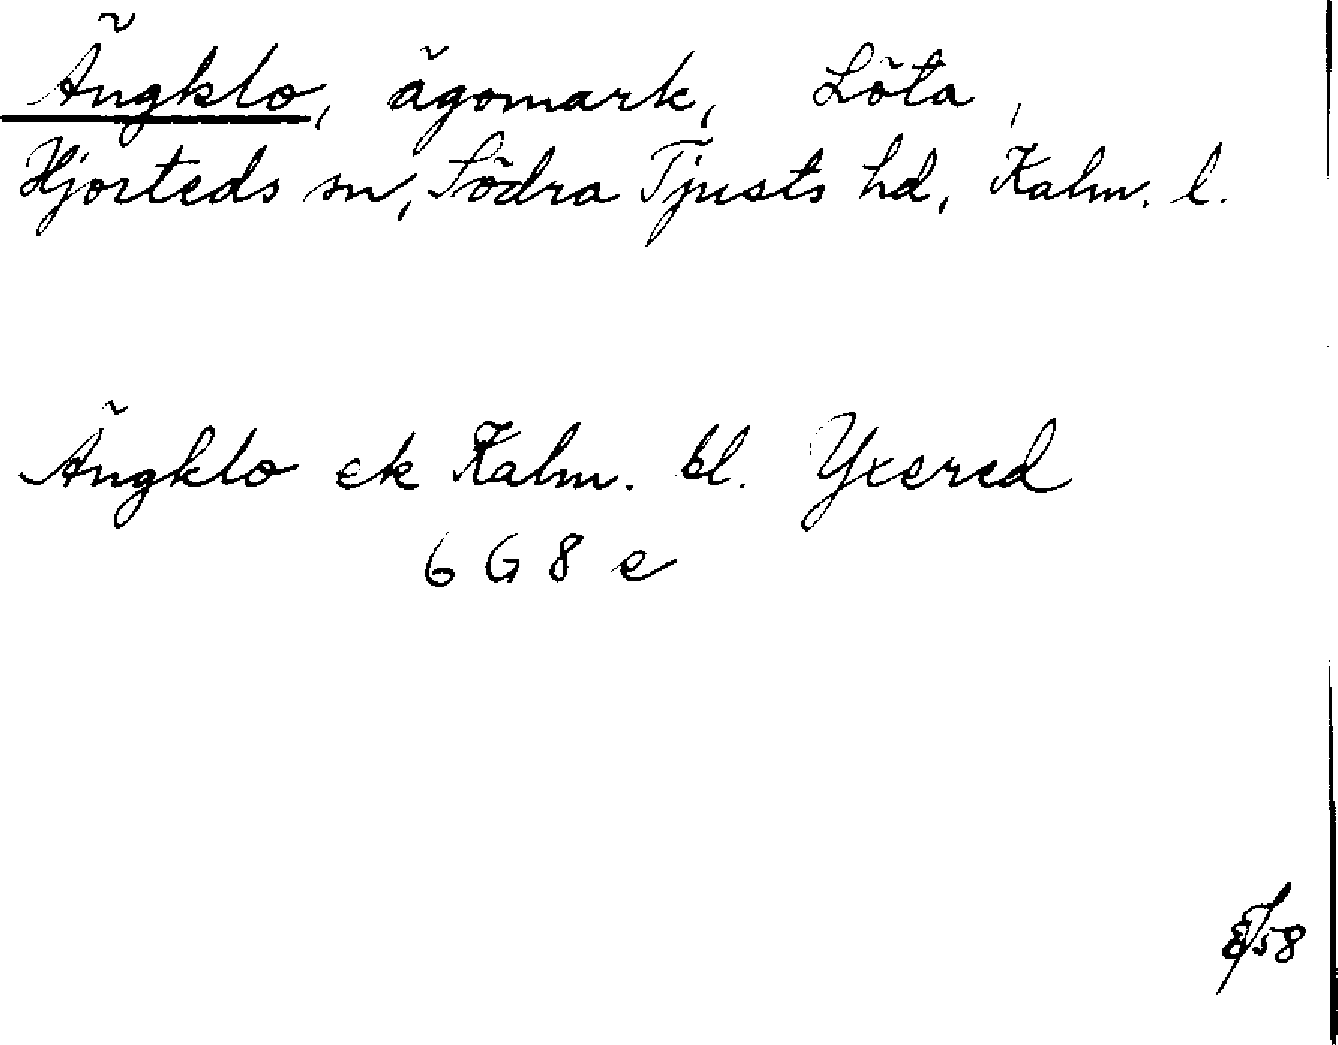 Ängklo, ägomark, Löta,
Hjorteds sn, Södra Tjusts hd, Kalm. l.
Ängklo ek Kalm. bl. Yxered
6 G 8 e
58